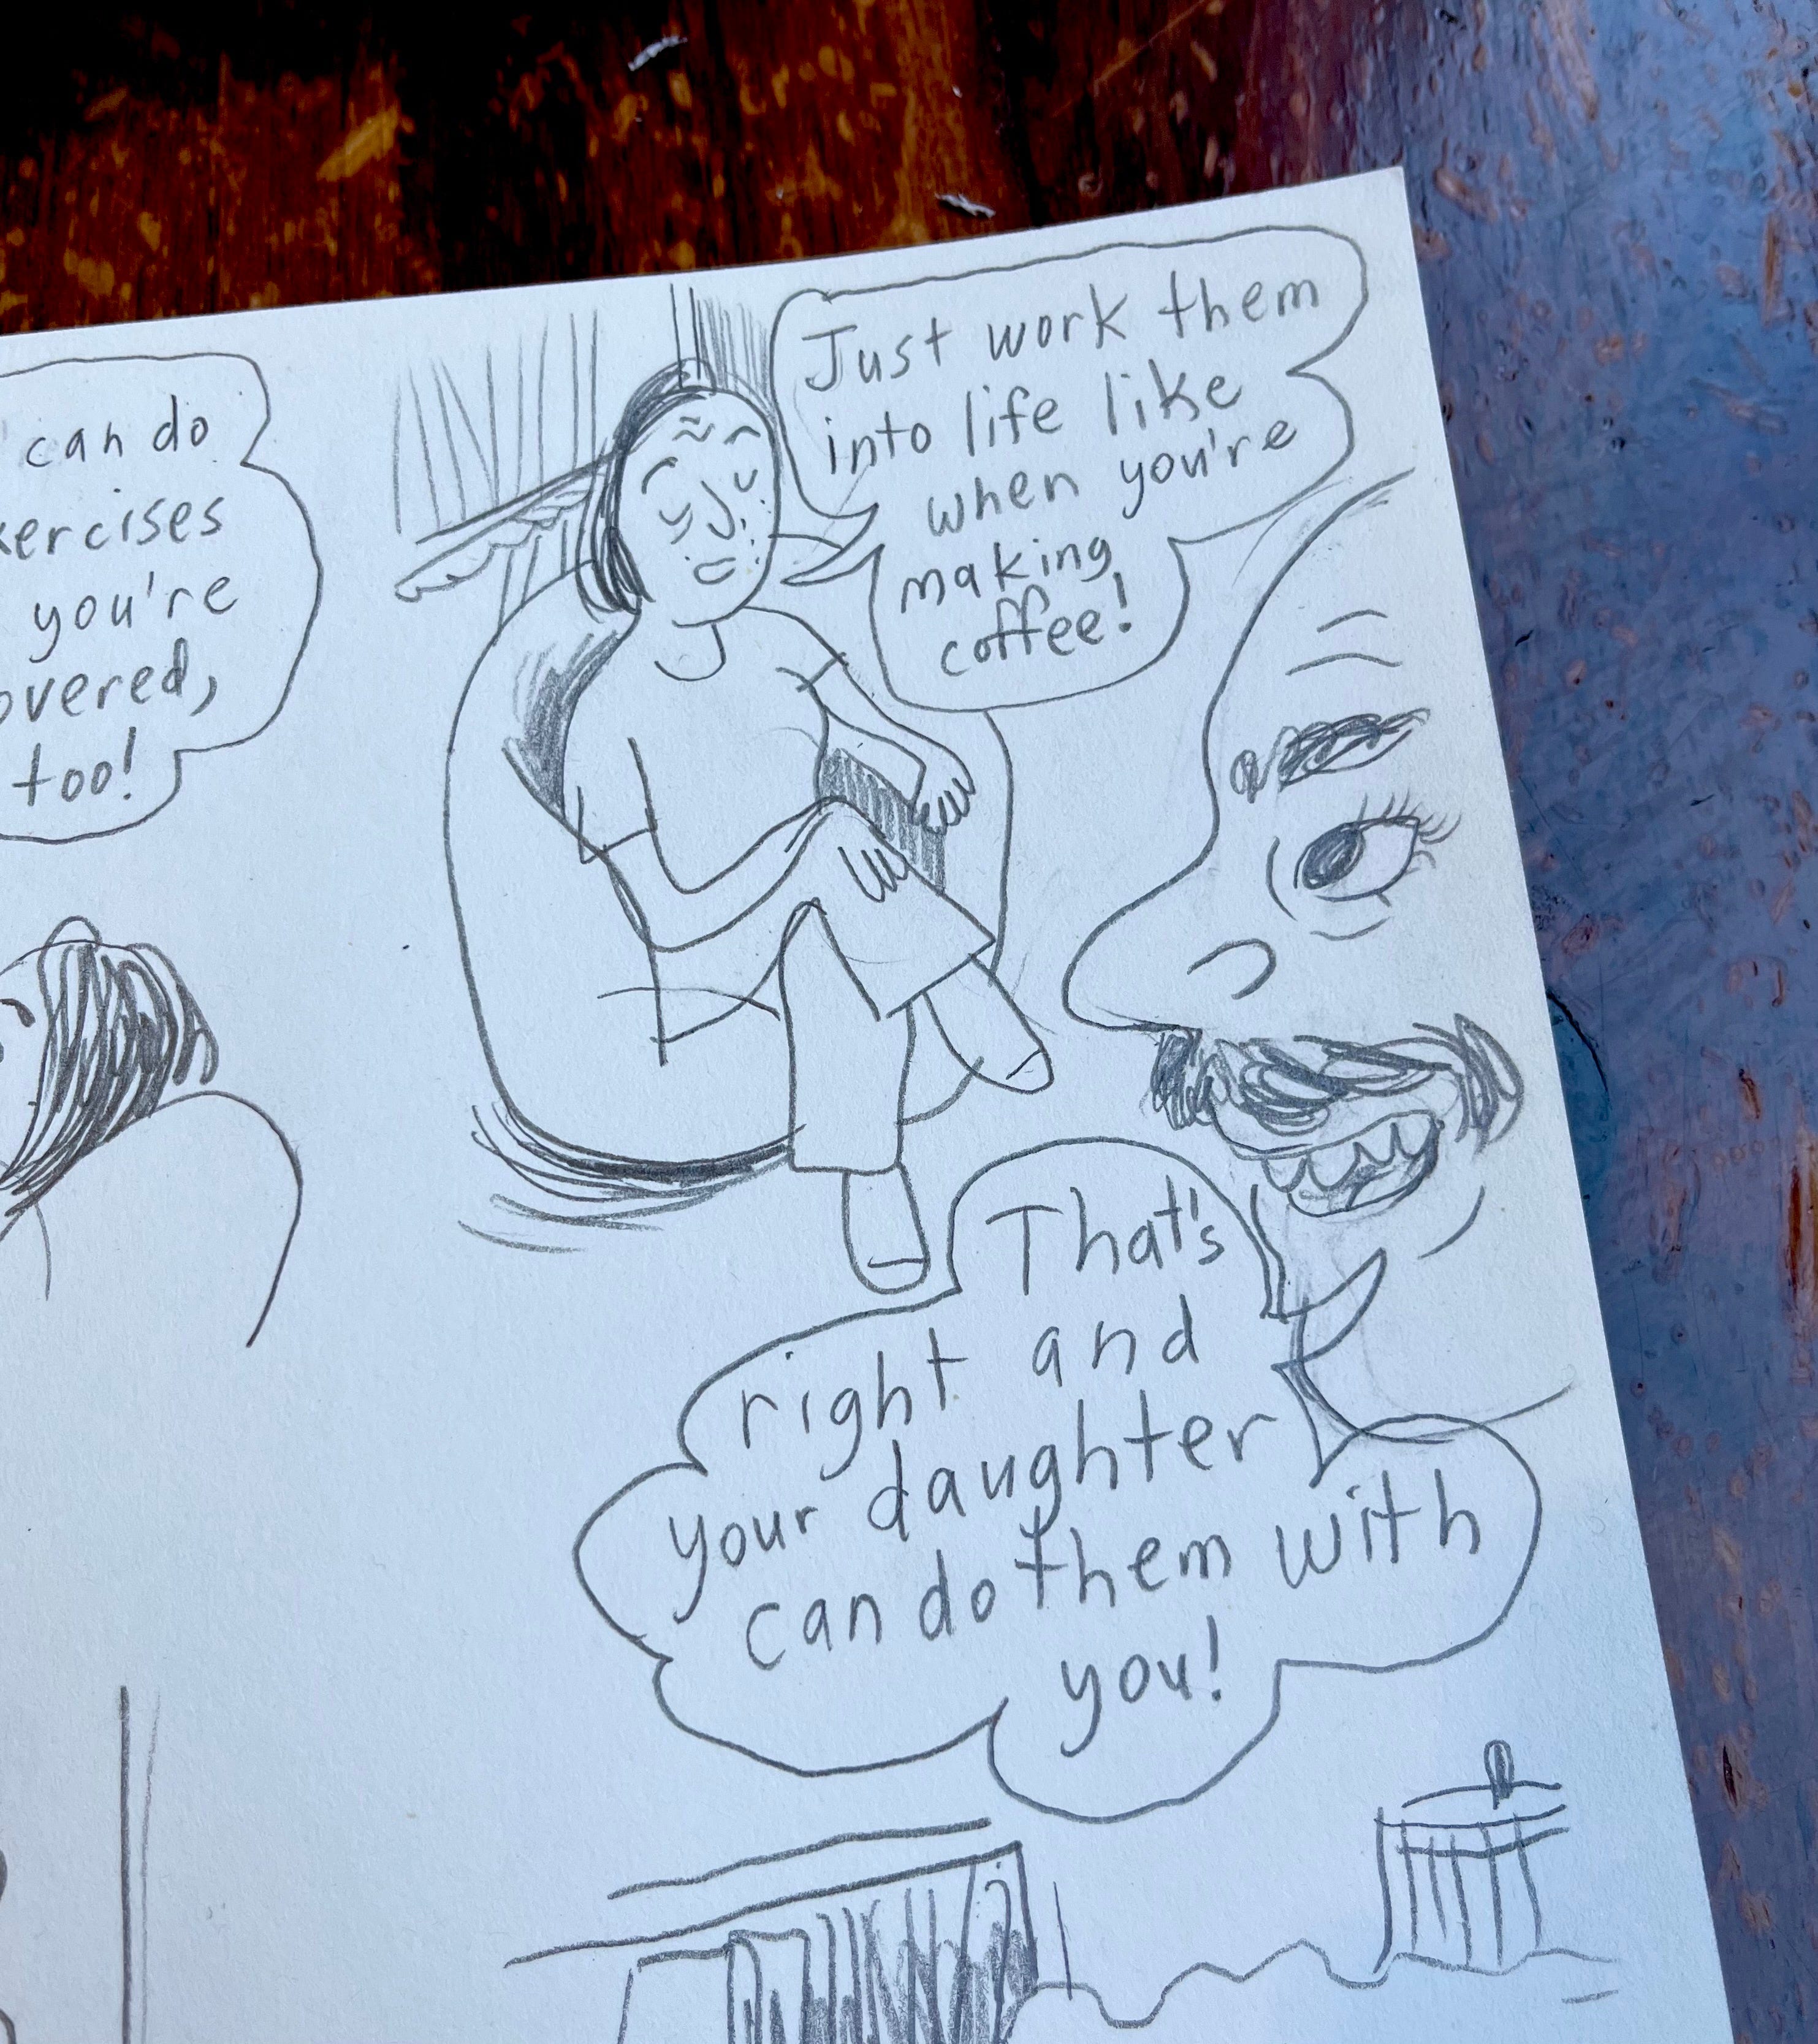 can do
you're
too!
Just work them
into life like
when you're
making
coffee!
That's
right and
your daughter
can do them with
you!